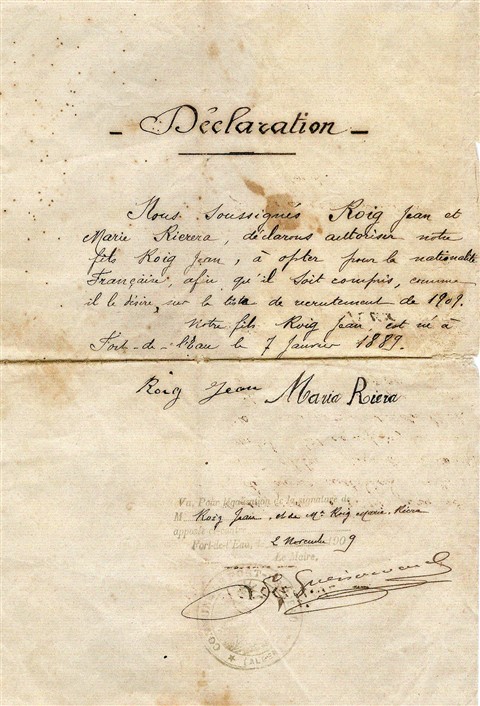 - Déclaration -
Nous soussignés Roig Jean et
Marie Rierera, déclarons autoriser notre
fils Roig Jean, à opter pour la nationalité
Française, afin qu'il soit compris, comme
il le désire, sur la liste de recrutement de 1909.
Notre fils Roig Jean est né à
Fort-de-l'Eau le 7 Janvier 1889.
Roig Jean Maria Riera
Vu, Pour légalisation de la signature de
M Roig Jean et de Me Roig Marie Riera
Fort-de-l'Eau, 2 Novembre 1909
Le Maire,